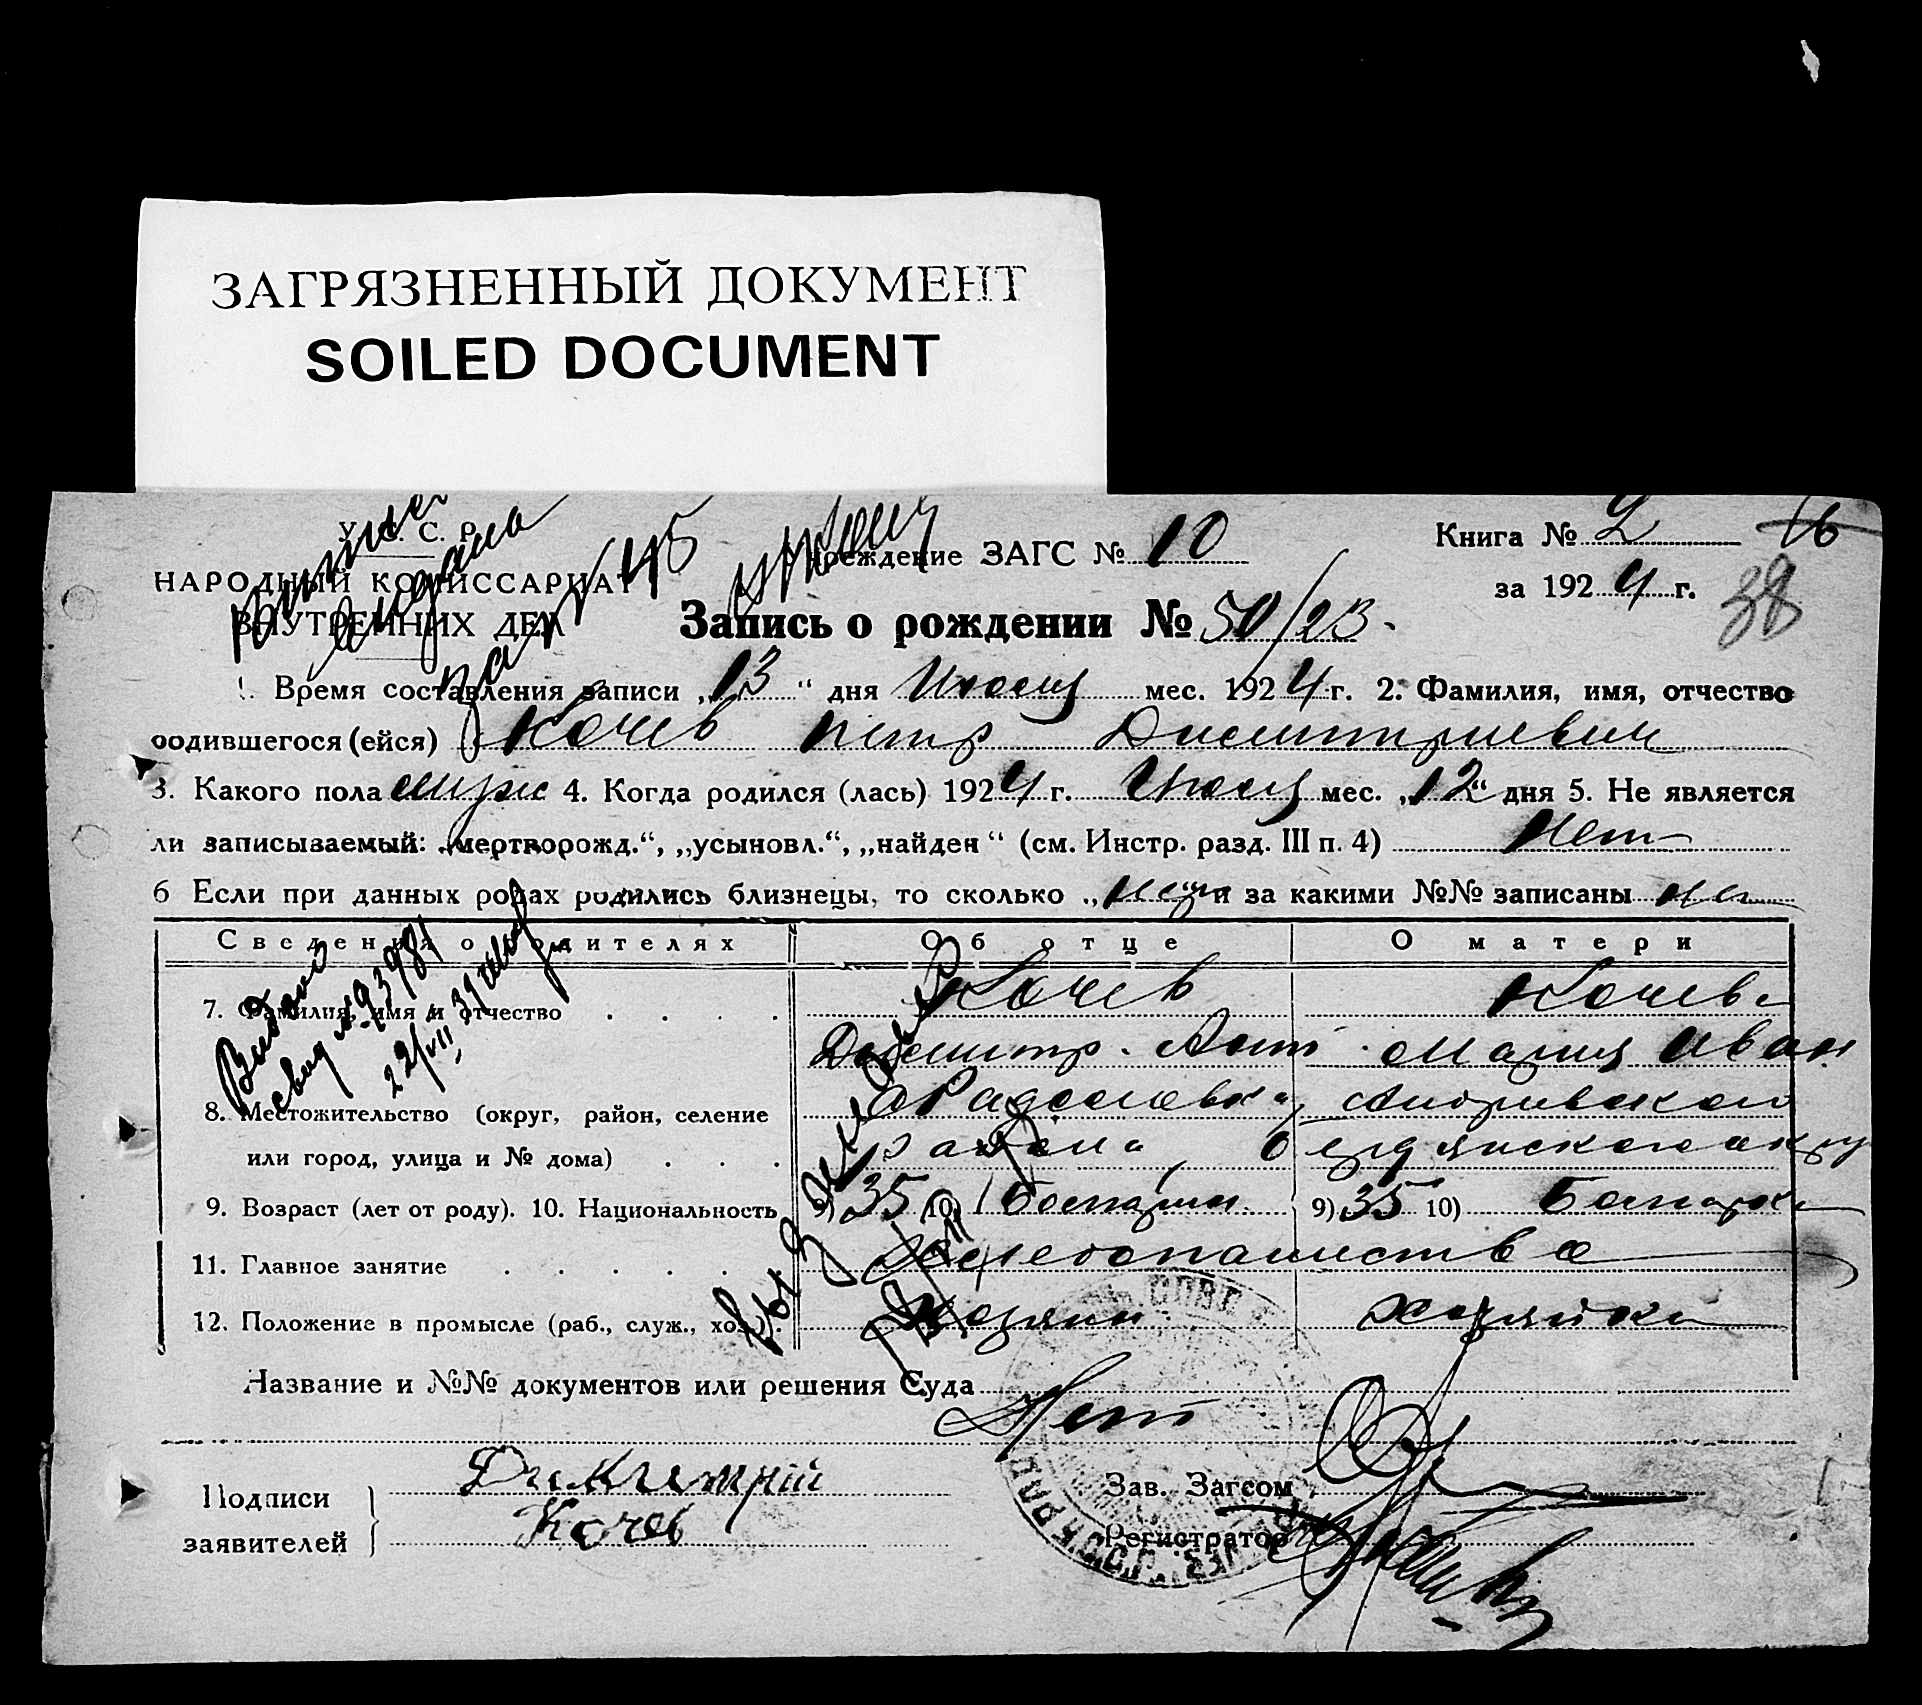 ЗАГРЯЗНЕННЫЙ ДОКУМЕНТ
SOILED DOCUMENT
У. С. С. Р.
НАРОДНЫЙ КОМИССАРИАТ
ВНУТРЕННИХ ДЕЛ
Учреждение ЗАГС № 10
Книга № 2
за 1924 г.
38
Запись о рождении № 50/23.
1. Время составления записи „13“ дня Июля мес. 1924 г. 2. Фамилия, имя, отчество
родившегося (ейся) Кочев Петр Дмитриевич
3. Какого пола муж 4. Когда родился (лась) 1924 г. Июля мес. „12“ дня 5. Не является
ли записываемый: „мертворожд.“, „усыновл.“, „найден“ (см. Инстр. разд. III п. 4) Нет
6 Если при данных родах родились близнецы, то сколько „нет и за какими №№ записаны нет
Сведения о родителях Об отце О матери
7. Фамилия, имя и отчество Кочев Кочева
Дмитр. Ант. Мария Иван
8. Местожительство (округ, район, селение
или город, улица и № дома) района
9. Возраст (лет от роду). 10. Национальность 9) 35 10) Болгарин 9) 35 10) Болгарка
11. Главное занятие Хлебопашество
12. Положение в промысле (раб., служ., хоз.). Хозяин Хозяйка
Название и №№ документов или решения Суда
Нет
Подписи
заявителей
Дмитрий
Кочев
Зав. Загсом
Регистратор
Выдано
свид № 93981